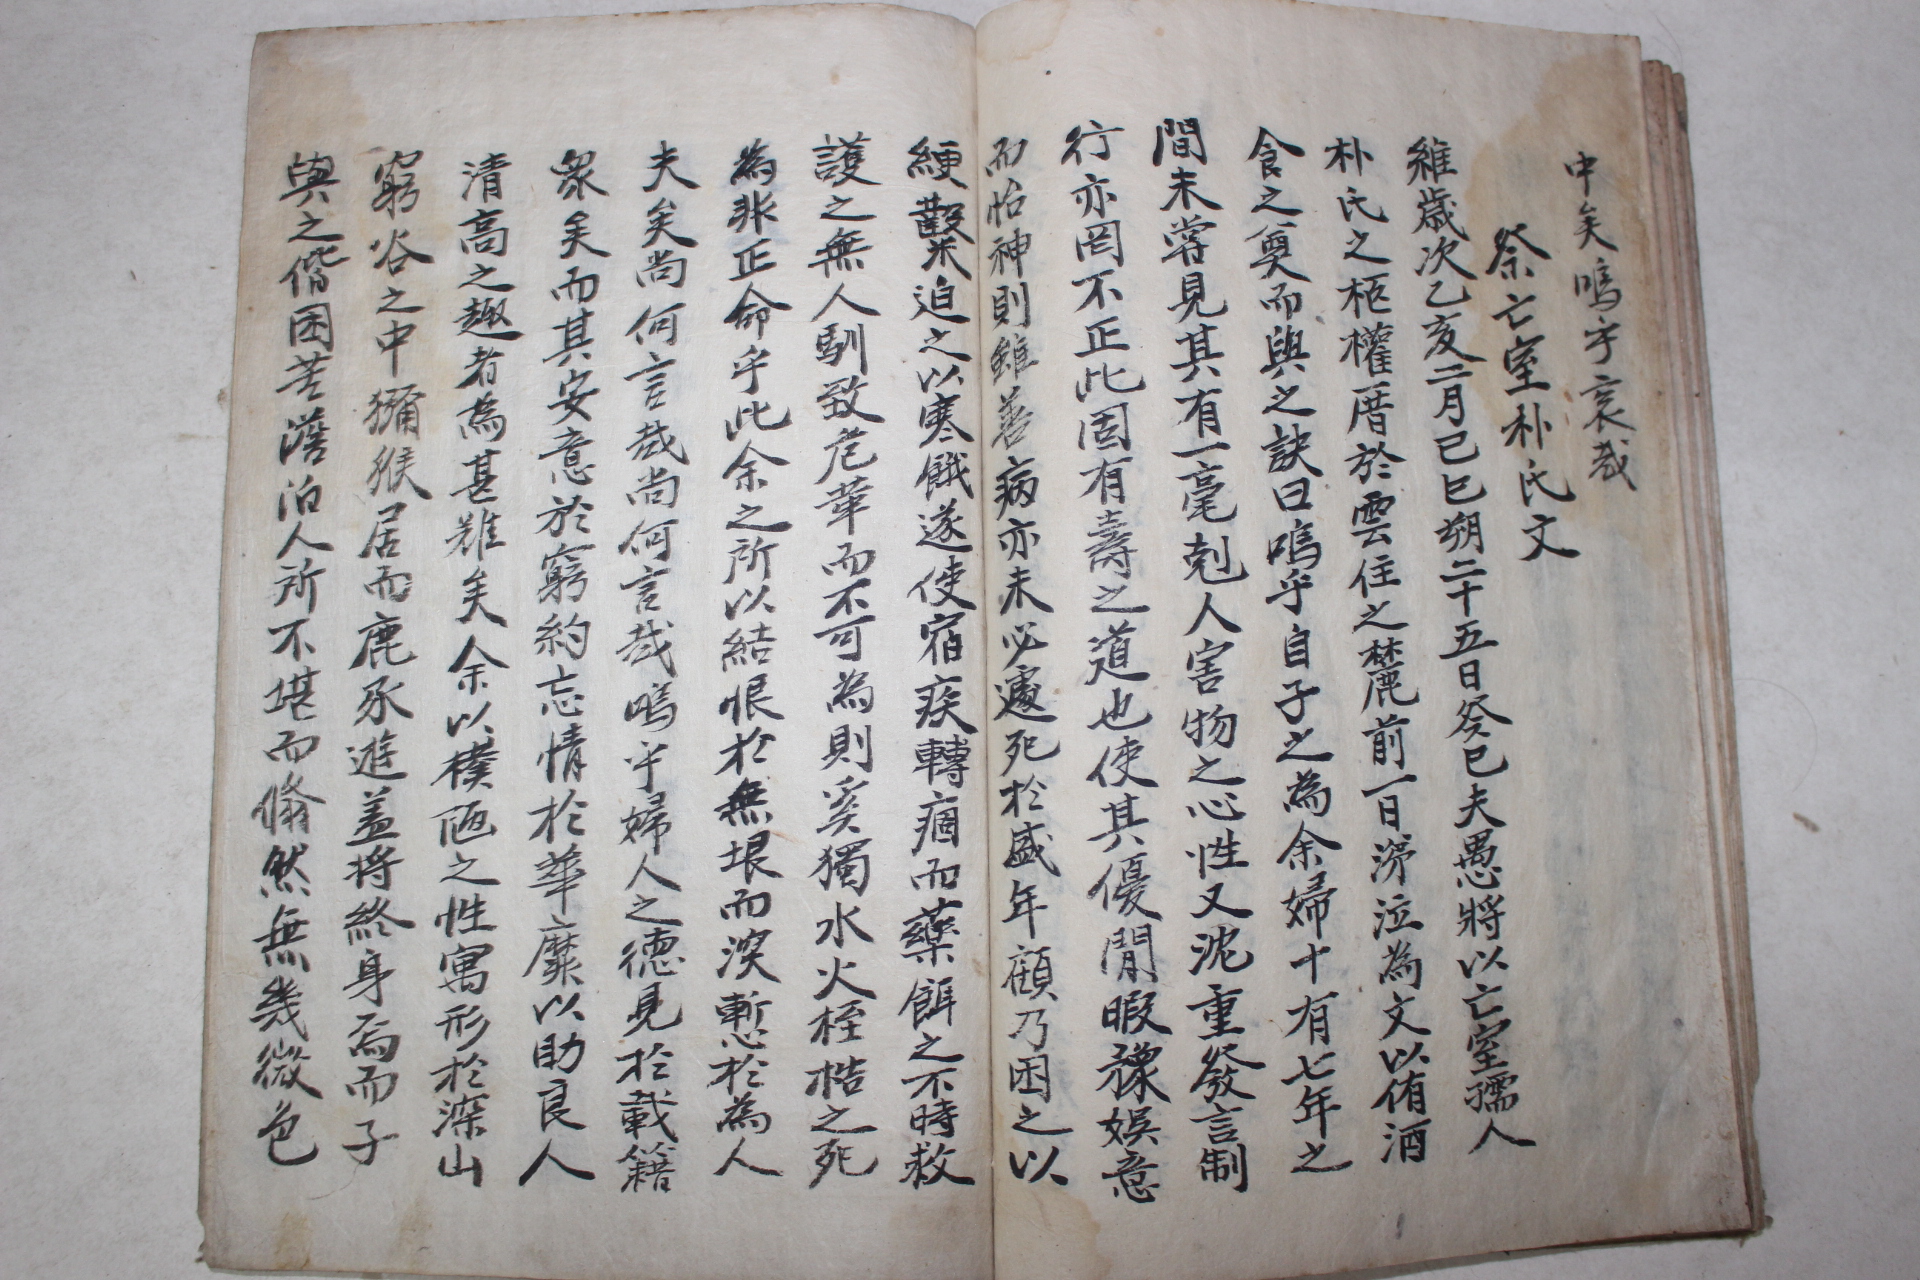 中矣嗚乎哀哉
祭亡室朴氏文
維歲次乙亥二月己巳朔二十五日癸巳夫愚將以亡室孺人
朴氏之柩權厝於雲住之麓前一日涕泣為文以侑酒
食之奠而與之訣曰嗚乎自子之為余婦十有七年之
間未嘗見其有一毫剋人害物之心性又沈重發言制
行亦罔不正此固有壽之道也使其優閒暇豫娛意
而怡神則雖善病亦未必遽死於盛年顧乃困之以
綆糶迫之以寒餓遂使宿疾轉痼而藥餌之不時救
護之無人馴致危革而不可為則奚獨水火桎梏之死
為非正命乎此余之所以結恨於無垠而深慙於為人
夫矣尚何言哉尚何言哉嗚乎婦人之德見於載籍
衆矣而其安意於窮約忘情於華靡以助良人
清高之趣者為甚難矣余以樸陋之性寓形於深山
窮谷之中獼猴居而鹿豕遊盖將終身焉而子
與之偕困苦澹泊人所不堪而翛然無幾微色